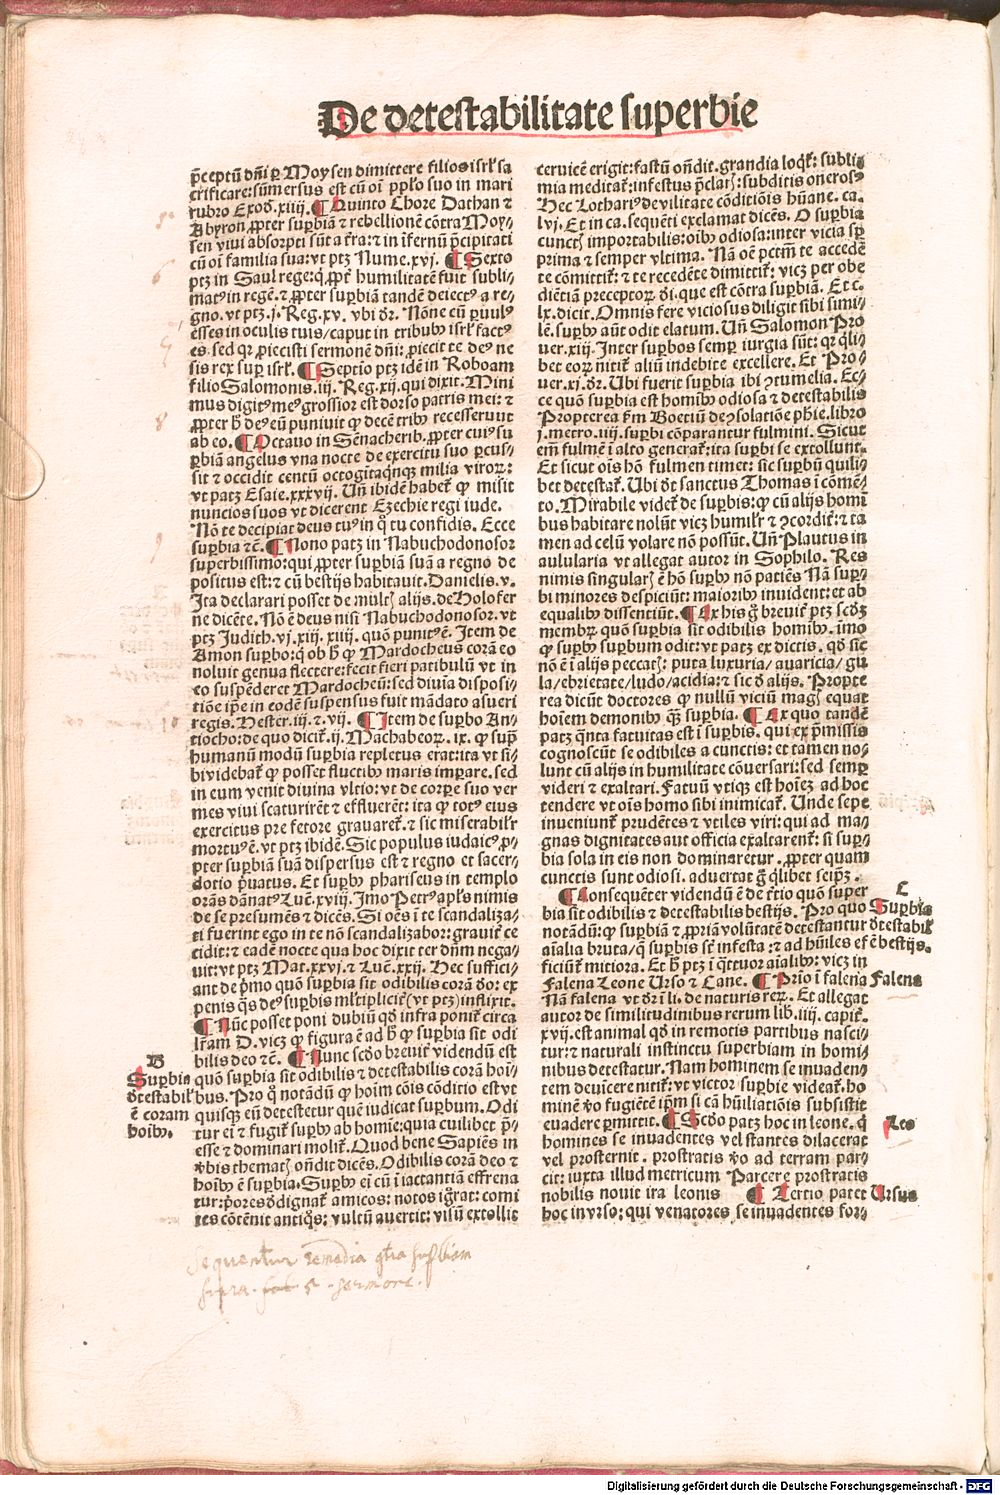 De detestabilitate superbie
p̃ceptũ dñi ꝑ Moysen dimittere filios isrl̃ sa
crificare: sũmersus est cũ oĩ ppl̃o suo in mari
rubro Exod. xiiij. ¶ Quinto Chore Dathan ⁊
Abyron ꝓpter suꝑbiã ⁊ rebellionẽ cõtra Moy⸗
sen vivi absorpti sũt a t̃ra: ⁊ in ĩfernũ p̃cipitati
cũ oĩ familia sua: vt ptꝫ Nume. xvj. ¶ Sexto
ptꝫ in Saul rege: q̃ ꝓpt̃ humilitatẽ fuit subli⸗
matꝰ in regẽ. ⁊ ꝓpter suꝑbiã tandẽ deiectꝰ a re⸗
gno. vt ptꝫ. j. Reg. xv. vbi dr̃. Nõne cũ ꝑuulꝰ
esses in oculis tuis / caput in tribubꝰ isrl̃ factꝰ
es. sed qꝛ ꝓiecisti sermonẽ dñi: ꝓiecit te deꝰ ne
sis rex suꝑ isrl̃. ¶ Septio ptꝫ idẽ in Roboam
filio Salomonis. iij. Reg. xij. qui dixit. Mini
mus digitꝰ meꝰ grossior est dorso patris mei: ⁊
ꝓpter h̃ deꝰ eũ puniuit ꝙ decẽ tribꝰ recesserunt
ab eo. ¶ Octauo in Sẽnacherib. ꝓpter cuiꝰ su
ꝑbiã angelus vna nocte de exercitu suo ꝑcus⸗
sit ⁊ occidit centũ octogĩtaq̃nqꝫ milia viroꝝ:
vt patꝫ Esaie. xxxvij. Uñ ibidẽ habet̃ ꝙ misit
nuncios suos vt dicerent Ezechie regi iude.
Nõ te decipiat deus tuꝰ in q̃ tu confidis. Ecce
suꝑbia ⁊c̃. ¶ Nono patꝫ in Nabuchodonosor
superbissimo: qui ꝓpter suꝑbiã suã a regno de
positus est: ⁊ cũ bestijs habitauit. Danielis. v.
Ita declarari posset de mult̃ alijs. de Holofer
ne dicẽte. Nõ ẽ deus nisi Nabuchodonosor. vt
ptꝫ Judith. vj. xiij. xiiij. quõ punitꝰ ẽ. Item de
Amon suꝑbo: q̃ ob h̃ ꝙ Mardocheus corã eo
noluit genua flectere: fecit fieri patibulũ vt in
eo suspẽderet Mardocheũ: sed diuĩa disposi⸗
tiõe ip̃e in eodẽ suspensus fuit mãdato asueri
regis. Hester. iij. ⁊. vij. ¶ Item de suꝑbo An⸗
tiocho: de quo dicit̃. ij. Machabeoꝝ. ix. ꝙ suꝑ
humanũ modũ suꝑbia repletus erat: ita vt si⸗
bi videbat̃ ꝙ posset fluctibꝰ maris imꝑare. sed
in eum venit diuina vltio: vt de corꝑe suo ver
mes viui scaturirẽt ⁊ effluerẽt: ita ꝙ totꝰ eius
exercitus pre fetore grauaret̃. ⁊ sic miserabilr̃
mortuꝰ ẽ. vt ptꝫ ibidẽ. Sic populus iudaicꝰ ꝓ⸗
pter suꝑbiã suã dispersus est ⁊ regno ⁊ sacer⸗
dotio p̃uatus. Et suꝑbꝰ phariseus in templo
orãs dãnatꝰ Luẽ. xviij. Imo Petrꝰ apl̃s nimis
de se presumẽs ⁊ dicẽs. Si oẽs ĩ te scandaliza⸗
ti fuerint ego in te nõ scandalizabor: grauit̃ ce
cidit: ⁊ eadẽ nocte qua hoc dixit ter dñm nega⸗
uit: vt ptꝫ Mat. xxvj. ⁊ Luẽ. xxij. Hec suffici⸗
ant de p̃mo quõ suꝑbia sit odibilis corã deo: ex
penis q̃s deꝰ suꝑbis ml̃tiplicit̃ (vt ptꝫ) inflixit.
¶ Nũc posset poni dubiũ qd̃ infra ponit̃ circa
lr̃am D. vicꝫ ꝙ figura ẽ ad h̃ ꝙ suꝑbia sit odi
bilis deo ⁊c̃. ¶ Nunc scd̃o breuit̃ videndũ est
quõ suꝑbia sit odibilis ⁊ detestabilis corã hoĩ⸗
bus. Pro q̃ notãdũ ꝙ hoĩm cõis cõditio est vt
quisqꝫ eũ detestetur quẽ iudicat suꝑbum. Odi
tur eĩ ⁊ fugit̃ suꝑbꝰ ab homĩe: quia cuilibet p̃⸗
esse ⁊ dominari molit̃. Quod bene Sapiẽs in
ṽbis themat̃ oñdit dicẽs. Odibilis corã deo ⁊
hoĩbꝰ ẽ suꝑbia. Suꝑbꝰ eĩ cũ ĩ iactantiã effrena
tur: p̃ores d̃dignat̃ amicos: notos ig̃rat: comi
tes cõtẽnit antiq̃s: vultũ auertit: visũ extollit
B
Suꝑbia
d̃testabil̃
ẽ coram
hoĩbꝰ.
ceruicẽ erigit: fastũ oñdit. grandia loqt̃: subli
mia meditat̃: infestus p̃clar̃: subditis onerosꝰ
Hec Lothariꝰ de vilitate cõditiõis hũane. ca.
lvj. Et in ca. sequẽti exclamat dicẽs. O suꝑbia
cunct̃ importabilis: oĩbꝰ odiosa: inter vicia sꝑ
prima ⁊ semper vltima. Nã oẽ pctm̃ te accedẽ
te cõmittit̃: ⁊ te recedẽte dimittit̃: vicꝫ per obe
diẽtiã preceptoꝝ dĩ. que est cõtra suꝑbiã. Et c.
lx. dicit. Omnis fere viciosus diligit sibi simi⸗
lẽ. suꝑbꝰ aũt odit elatum. Uñ Salomon Pro
uer. xiij. Inter suꝑbos semꝑ iurgia sũt: qꝛ q̃li⸗
bet eoꝝ nitit̃ aliũ indebite excellere. Et Pro⸗
uer. xj. dr̃. Ubi fuerit suꝑbia ibi ꝯtumelia. Ec⸗
ce quõ suꝑbia est homĩbꝰ odiosa ⁊ detestabilis
Propterea scd̃m Boetiũ de ꝯsolatiõe phĩe. libro
j. metro. iiij. suꝑbi cõparantur fulmini. Sicut
em̃ fulmẽ ĩ alto generat̃: ita suꝑbi se extollunt.
Et sicut oĩs hõ fulmen timet: sic suꝑbũ quili⸗
bet detestat̃. Ubi dt̃ sanctus Thomas ĩ cõmẽ⸗
to. Mirabile videt̃ de suꝑbis: ꝙ cũ alijs homĩ
bus habitare nolũt vicꝫ humilr̃ ⁊ ꝯcordit̃: ⁊ ta
men ad celũ volare nõ possũt. Uñ Plautus in
aulularia vt allegat autor in Sophilo. Res
nimis singular̃ ẽ hõ suꝑbꝰ nõ patiẽs Nã suꝑ⸗
bi minores despiciũt: maioribꝰ inuident: et ab
equalibꝰ dissentiũt. ¶ Ex his g̃ breuit̃ ptꝫ scd̃ꝫ
membꝝ quõ suꝑbia sit odibilis homĩbꝰ. imo
ꝙ suꝑbꝰ suꝑbum odit: vt patꝫ ex dictis. qd̃ sic
nõ ẽ ĩ alijs peccat̃: puta luxuria / auaricia / gu
la / ebrietate / ludo / acidia: ⁊ sic d̃ alijs. Propte
rea dicũt doctores ꝙ nullũ viciũ mag̃ equat
hoĩem demonibꝰ q̃ꝫ suꝑbia. ¶ Ex quo tandẽ
patꝫ q̃nta fatuitas est ĩ suꝑbis. qui ex p̃missis
cognoscũt se odibiles a cunctis: et tamen no⸗
lunt cũ alijs in humilitate cõuersari: sed semꝑ
videri ⁊ exaltari. Fatuũ vtiqꝫ est hoĩeꝫ ad hoc
tendere vt oĩs homo sibi inimicat̃. Unde sepe
inueniunt̃ prudẽtes ⁊ vtiles viri: qui ad ma⸗
gnas dignitates aut officia exaltarent̃: si suꝑ⸗
bia sola in eis non dominaretur. ꝓpter quam
cunctis sunt odiosi. aduertat g̃ q̃libet seip̃ꝫ.
¶ Consequẽter videndũ ẽ de t̃tio quõ super
bia sit odibilis ⁊ detestabilis bestijs. Pro quo
notãdũ: ꝙ suꝑbiã ⁊ ꝓpriã volũtatẽ detestantur
aĩalia bruta / q̃ suꝑbis st̃ infesta: ⁊ ad hũiles ef
ficiũt̃ mitiora. Et h̃ ptꝫ ĩ q̃ttuor aĩalibꝰ: vicꝫ in
Falena Leone Urso ⁊ Cane. ¶ Prĩo ĩ falena
Nã falena vt dr̃ ĩ lĩ. de naturis reꝝ. Et allegat
autor de similitudinibus rerum lib̃. iiij. capit̃.
xvij. est animal qd̃ in remotis partibus nasci⸗
tur: ⁊ naturali instinctu superbiam in homi⸗
nibus detestatur. Nam hominem se inuaden⸗
tem deuĩcere nitit̃: vt victor suꝑbie videat̃. ho
minẽ ṽo fugiẽtẽ ip̃m si cã hũiliatiõis subsistit
euadere ꝑmittit. ¶ Scd̃o patꝫ hoc in leone. q̃
homines se inuadentes vel stantes dilacerat
vel prosternit. prostratis ṽo ad terram par⸗
cit: iuxta illud metricum Parcere prostratis
nobilis nouit ira leonis ¶ Tertio patet
hoc in vrso: qui venatores se inuadentes for⸗
C
Suꝑbia
d̃testabil̃
ẽ bestijs.
Falena
Leo
Ursus
Sequentur remedia contra superbiam
supra 5 sermone.
Digitalisierung gefördert durch die Deutsche Forschungsgemeinschaft - DFG